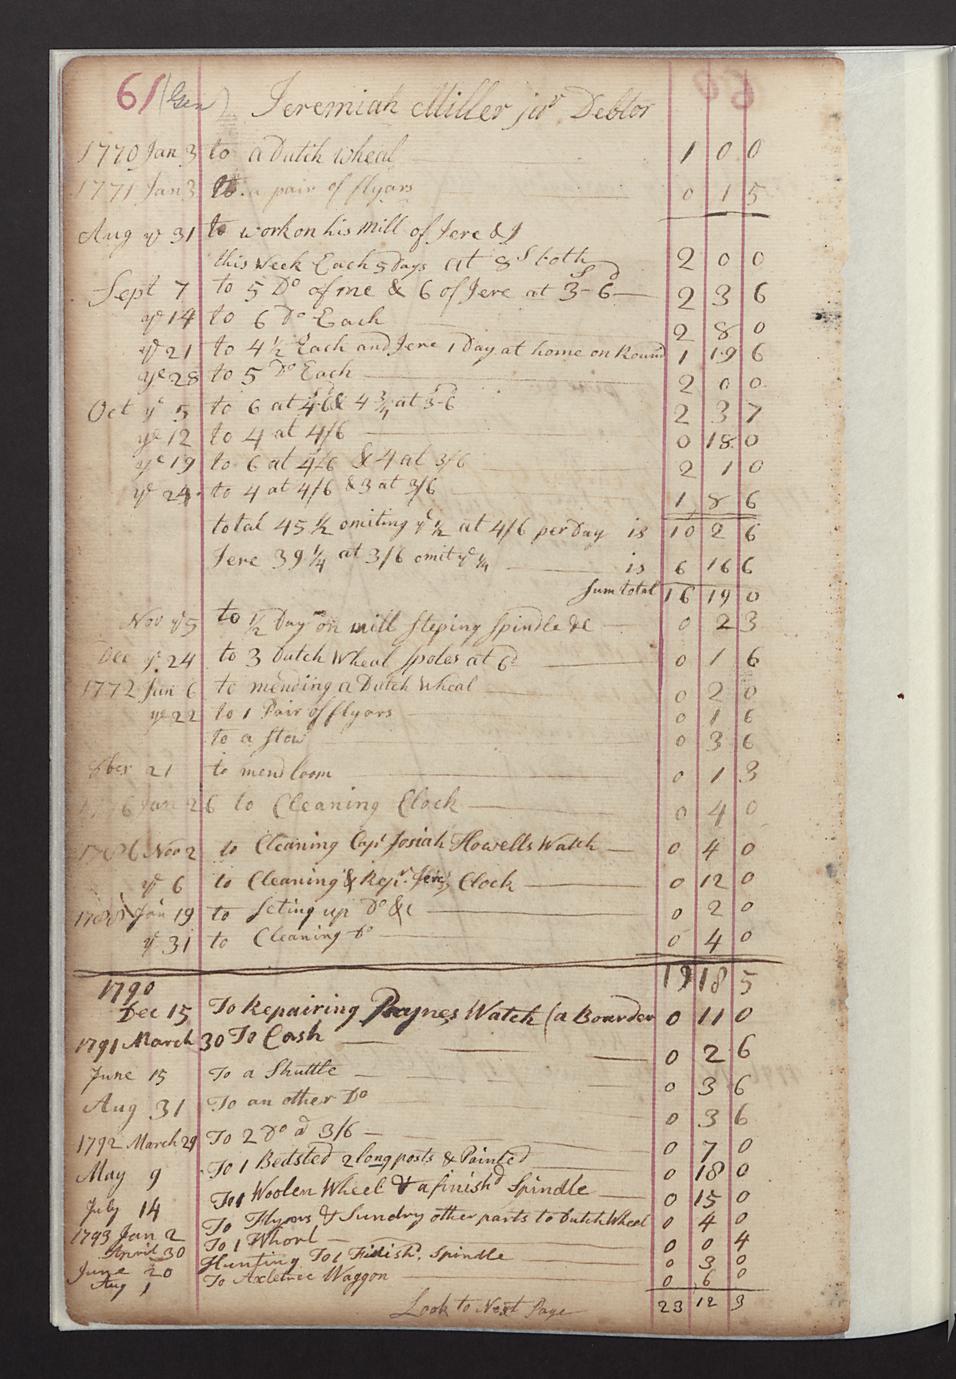 61 (Gen) Jeremiah Miller junr Debtor
1770 Jan 3 to a Dutch wheal 1 0 0
1771 Jan 3 to a pair of flyars 0 1 5
Aug ye 31 to work on his mill of Jere & I
this Week Each 5 Days at 8s both 2 0 0
Sept 7 to 5 Do of me & 6 of Jere at 3s-6d 2 3 6
ye 14 to 6 Do Each 2 8 0
ye 21 to 4 1/2 Each and Jere 1 Day at home on Round 1 19 6
ye 28 to 5 Do Each 2 0 0
Oct ye 5 to 6 at 4-6 & 4 3/4 at 3-6 2 3 7
ye 12 to 4 at 4/6 0 18 0
ye 19 to 6 at 4/6 & 4 at 3/6 2 1 0
ye 24 to 4 at 4/6 & 3 at 3/6 1 8 6
total 45 1/2 omiting ye 1/2 at 4/6 per Day is 10 2 6
Jere 39 1/4 at 3/6 omit ye 1/4 is 6 16 6
Sum total 16 19 0
Nov ye 5 to 1/2 Day on mill Steping Spindle &c 0 2 3
Dec ye 24 to 3 Dutch Wheal Spoles at 6d 0 1 6
1772 Jan 6 to mending a Dutch Wheal 0 2 0
ye 22 to 1 Pair of flyars 0 1 6
to a Stow 0 3 6
21 to mend loom 0 1 3
Jan 26 to Cleaning Clock 0 4 0
1786 Nov 2 to Cleaning Capt Josiah Howells Watch 0 4 0
ye 6 to Cleaning & Repr. Jere Clock 0 12 0
Jan 19 to Seting up Do &c 0 2 0
ye 31 to Cleaning Do 0 4 0
19 18 5
1790
Dec 15 To Repairing Paynes Watch (a Boarder 0 11 0
1791 March 30 To Cash 0 2 6
June 15 To a Shuttle 0 3 6
Aug 31 To an other Do 0 3 6
1792 March 29 To 2 Do a 3/6 0 7 0
May 9 To 1 Bedsted 2 long posts & Painted 0 18 0
July 14 To 1 Woolen Wheel & a finishd Spindle 0 15 0
To Flyors & Sundry other parts to Dutch Wheel 0 4 0
1793 Jan 2 To 1 Whorl 0 0 4
April 30 Hunting To 1 Finish. Spindle 0 3 0
June 20
Aug 1 To Axletree Waggon 0 6 0
Look to Next Page 23 12 3